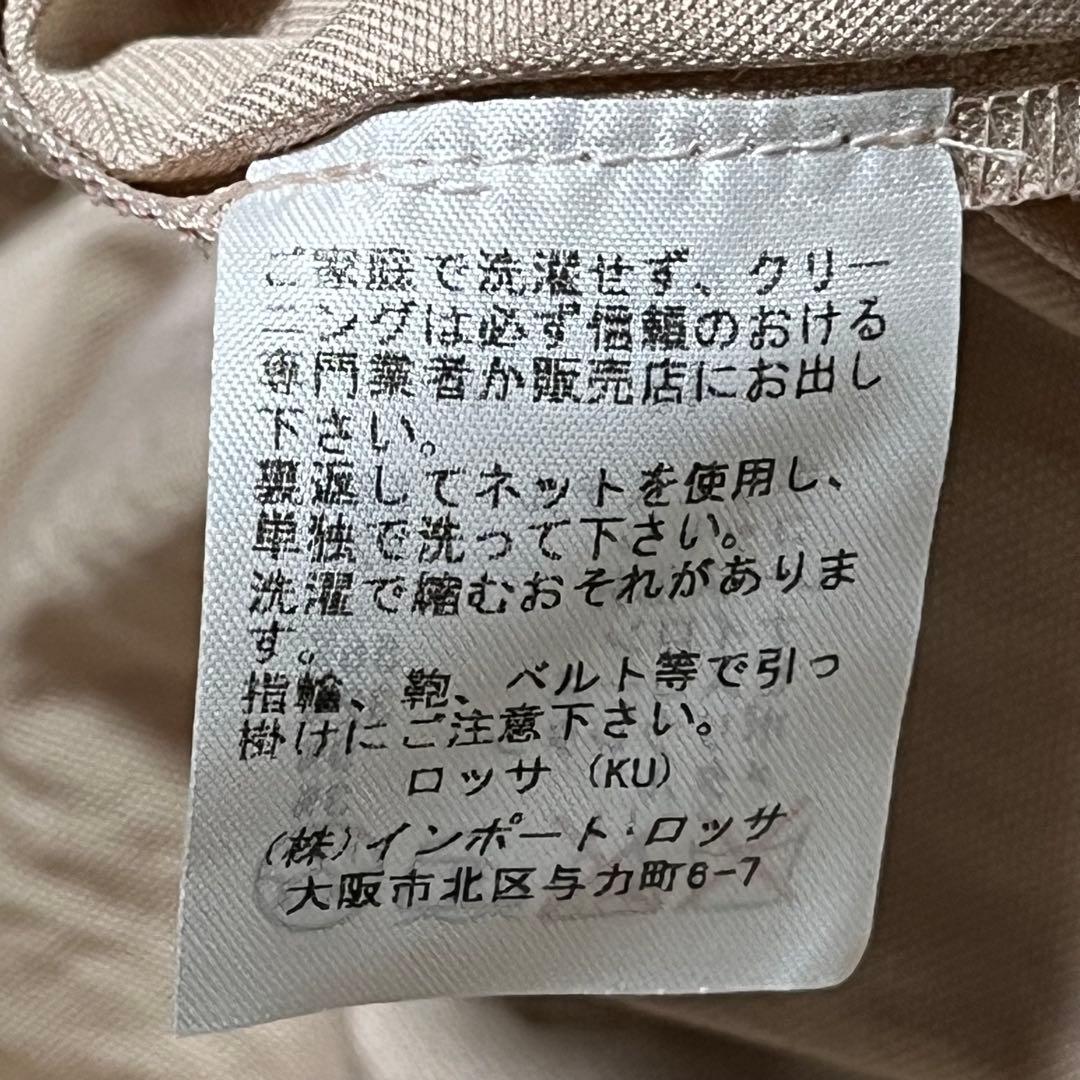 ご家庭で洗濯せず、クリー
ニングは必ず信頼のおける
専門業者か販売店にお出し
下さい。
裏返してネットを使用し、
単独で洗って下さい。
洗濯で縮むおそれがありま
す。
指輪、鞄、ベルト等で引っ
掛けにご注意下さい。
ロッサ (KU)
(株)インポート・ロッサ
大阪市北区与力町6-7